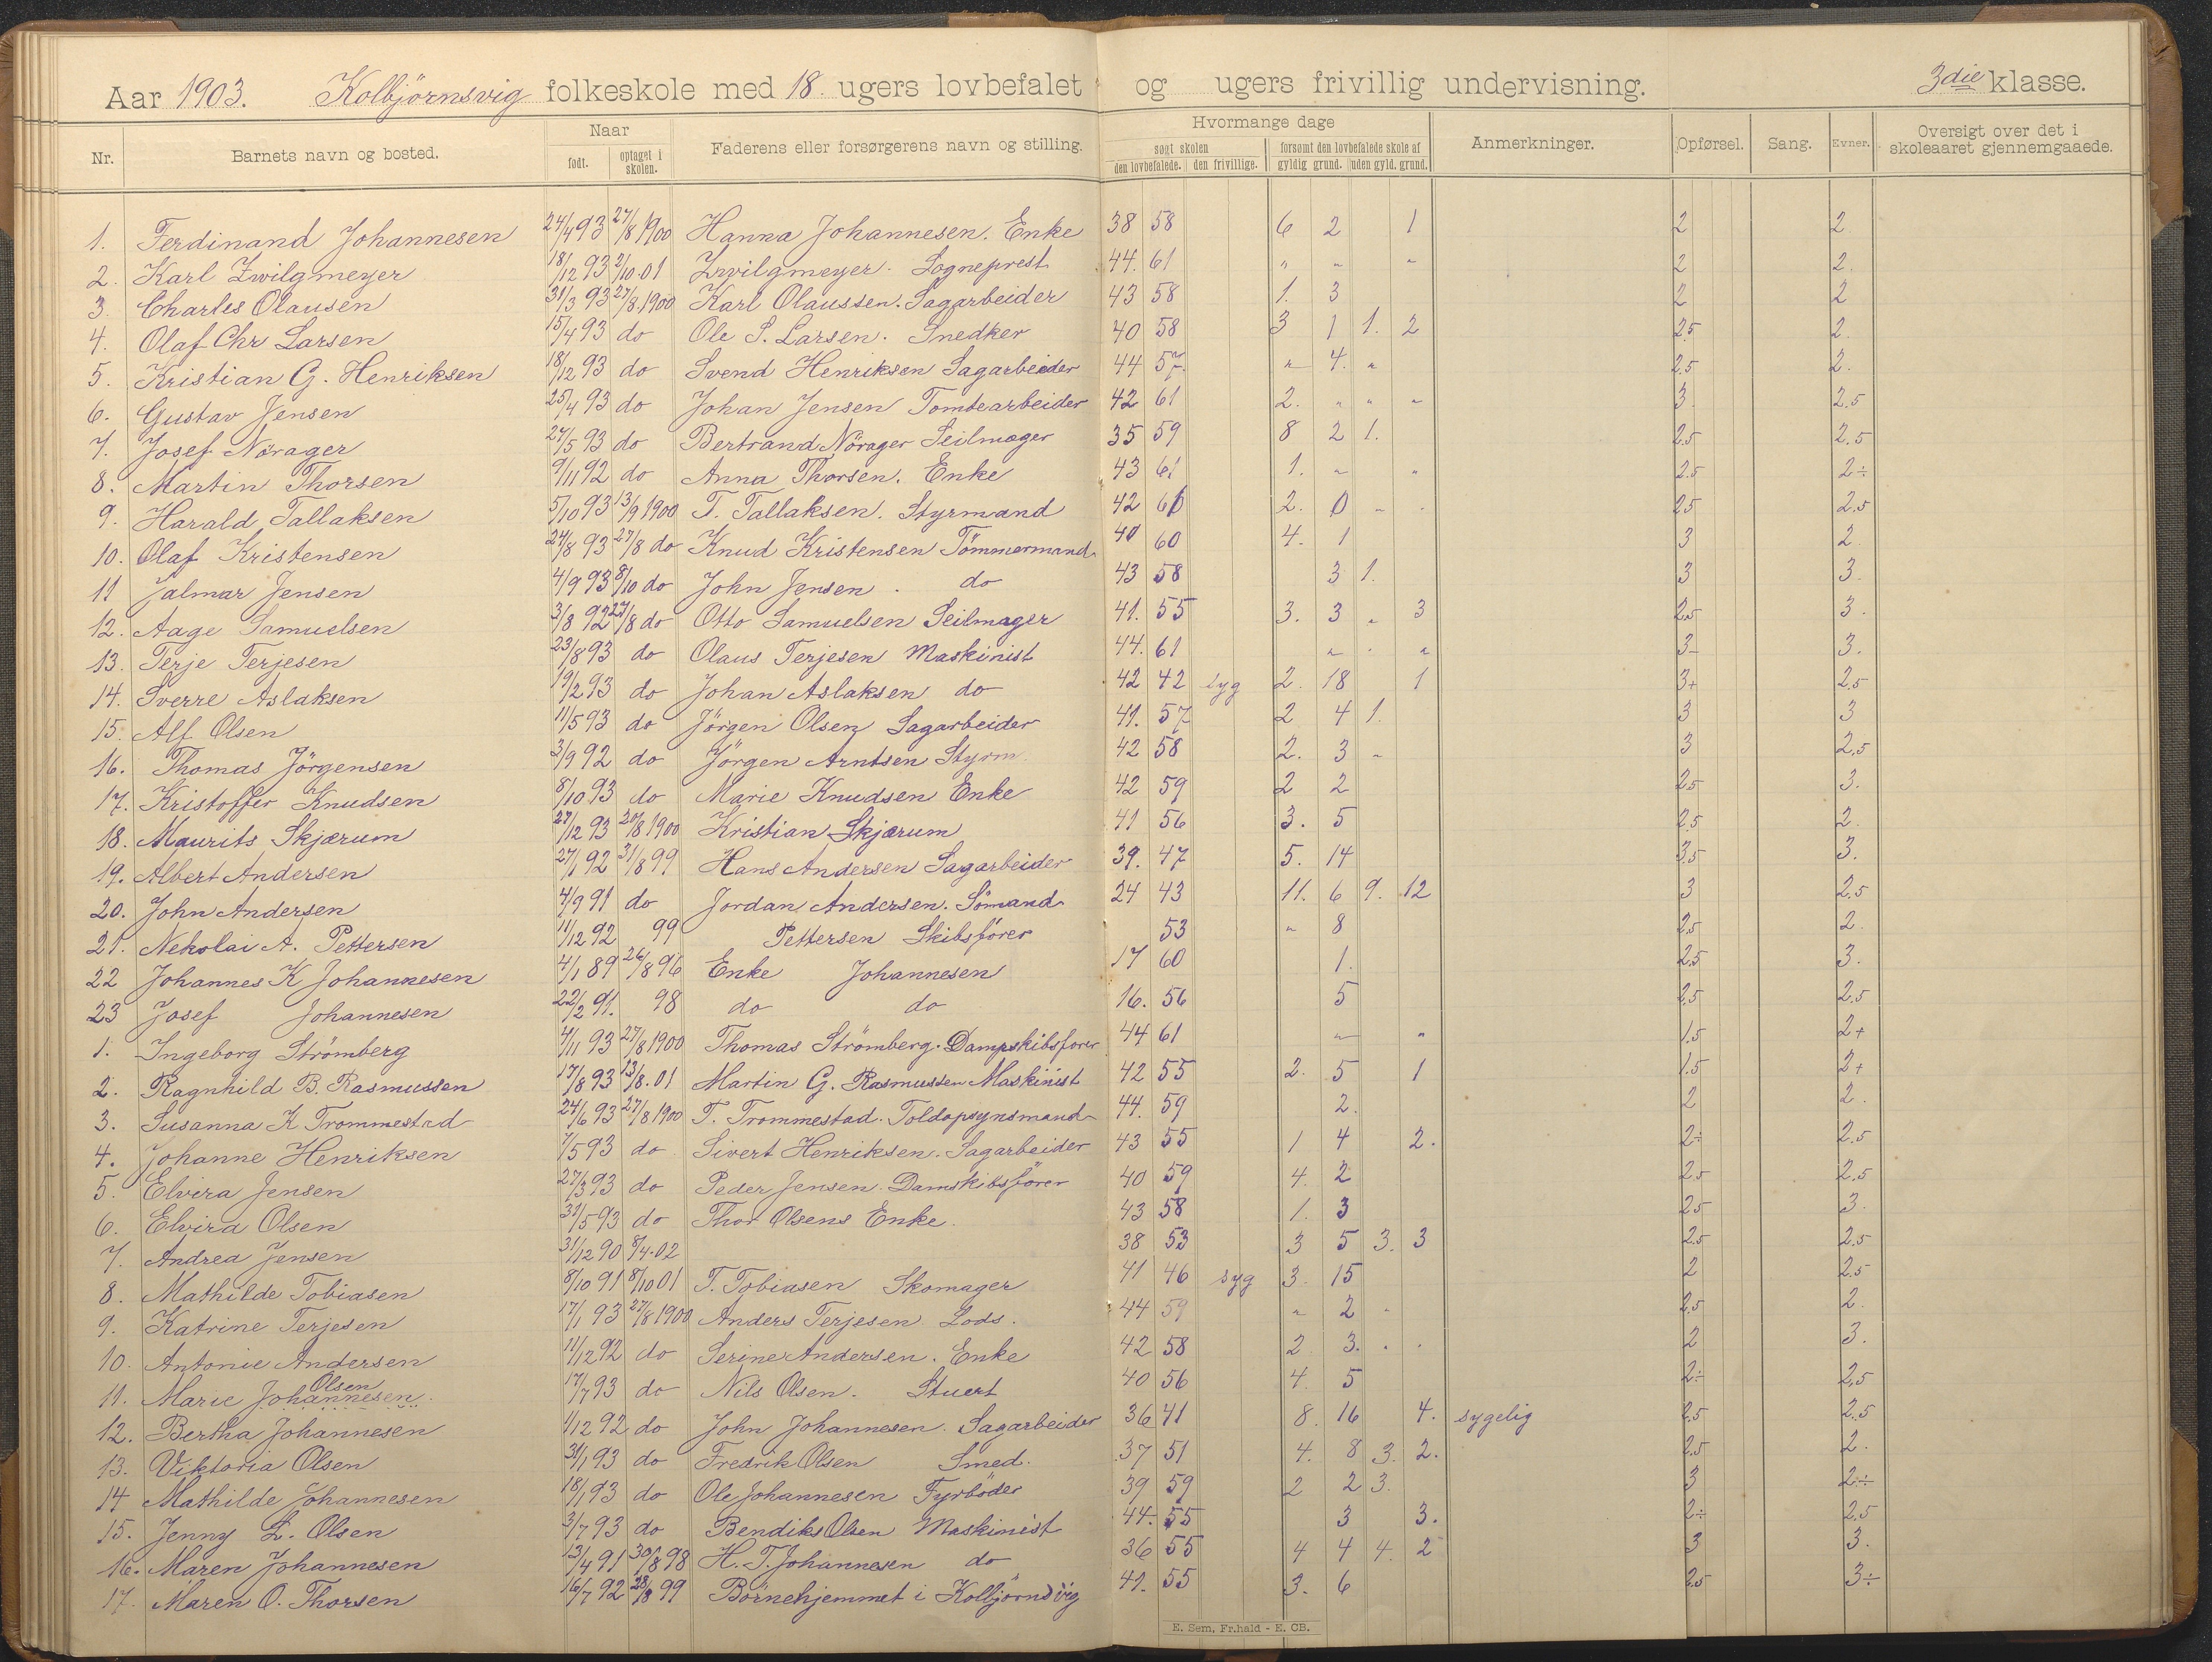 Aar 1903. Kolbjörnsvig folkeskole med 18. ugers lovbefalet og ugers frivillig undervisning. 3die klasse.
Nr. Barnets navn og bosted. Naar født. optaget i skolen. Faderens eller forsørgerens navn og stilling. Hvormange dage søgt skolen den lovbefalede. den frivillige. forsømt den lovbefalede skole af gyldig grund. uden gyld. grund. Anmerkninger. Opførsel. Sang. Evner. Oversigt over det i skoleaaret gjennemgaaede.
1. Ferdinand Johannesen 24/4 93 27/8 1900 Hanna Johannesen. Enke 38 58 6 2 1 2 2
2. Karl Zwilgmeyer 18/12 93 2/10 01 Zwilgmeyer. Sogneprest 44. 61 " " " 2 2.
3. Charles Olausen 31/3 93 27/8 1900 Karl Olaussen. Sagarbeider 43 58 1. 3 2 2
4. Olaf Chr Larsen 15/4 93 do Ole S. Larsen. Snedker 40 58 3 1 1. 2 2.5 2.
5. Kristian G. Henriksen 18/12 93 do Svend Henriksen Sagarbeider 44 57. " 4. " 2.5 2.
6. Gustav Jensen 25/4 93 do Johan Jensen Tomtearbeider 42 61 2. " " " 3. 2.5
7. Josef Nörager 27/5 93 do Bertrand Nörager Seilmager 35 59 8 2 1. 2.5 2.5
8. Martin Thorsen 9/11 92 do Anna Thorsen. Enke 43 61 1. " " 2.5 2÷
9. Harald Tallaksen 5/10 93 13/9 1900 T. Tallaksen. Styrmand 42 60 2. 0 " " 2.5 2.5
10. Olaf Kristensen 24/8 93 27/8 do Knud Kristensen Tömmermand 40 60 4. 1 3 2.
11 Jalmar Jensen 4/9 93 8/10 do John Jensen. do 43 58 3 1. 3 3.
12. Aage Samuelsen 3/8 92 27/8 do Otto Samuelsen Seilmager 41. 55 3. 3 " 3 2.5 3.
13. Terje Terjesen 23/8 93 do Olaus Terjesen Maskinist 44. 61 " " " 3- 3.
14. Sverre Aslaksen 19/2 93 do Johan Aslaksen do 42 42 syg 2. 18 1 3+ 2.5
15. Alf Olsen 11/5 93 do Jörgen Olsen Sagarbeider 41. 57 2 4 1. 3 3
16. Thomas Jörgensen 3/9 92 do Jörgen Arntsen Styrm. 42 58 2. 3 " 3 2.5
17. Kristoffer Knudsen 8/10 93 do Marie Knudsen Enke 42 59 2 2 2.5 3.
18. Maurits Skjærum 27/12 93 20/8 1900 Kristian Skjærum 41 56 3. 5 2.5 2.
19. Albert Andersen 27/1 92 31/8 99 Hans Andersen Sagarbeider 39. 47 5. 14 3.5 3.
20. John Andersen 4/9 91 do Jordan Andersen. Sömand 24 43 11. 6 9. 12 3 2.5
21. Nekolai A. Pettersen 11/12 92 99 Pettersen Skibsförer 53 " 8 2.5 2.
22 Johannes K Johannesen 4/1 89 26/8 96 Enke Johannesen 17 60 1. 2.5 3.
23 Josef Johannesen 22/2 91. 98 do do 16. 56 5 2.5 2.5
1. Ingeborg Strömberg 4/11 93 27/8 1900 Thomas Strömberg. Dampskibsförer 44 61 " " 1.5 2+
2. Ragnhild B. Rasmussen 17/8 93 13/8. 01 Martin G. Rasmussen Maskinist 42 55 2. 5 1 1.5 2+
3. Susanna K Trommestad 24/6 93 27/8 1900 T. Trommestad. Toldopsynsmand 44. 59 2. 2 2.
4. Johanne Henriksen 7/5 93 do Sivert Henriksen. Sagarbeider 43 55 1 4 2. 2÷ 2.5
5. Elvira Jensen 27/3 93 do Peder Jensen. Damskibsförer 40 59 4. 2 2.5 2.5
6. Elvira Olsen 31/5 93 do Thor Olsens Enke. 43 58 1. 3 2.5 3.
7. Andrea Jensen 31/12 90 8/4. 02 38 53 3 5 3. 3 2.5 2.5
8. Mathilde Tobiasen 8/10 91 8/10 01 T. Tobiasen Skomager 41 46 syg 3. 15 2 2.5
9. Katrine Terjesen 17/1 93 27/8 1900 Anders Terjesen Lods. 44 59 " 2 " 2.5 2.
10. Antonie Andersen 11/12 92 do Serine Andersen. Enke 42 58 2 3. 2 3.
11. Marie Johannesen. Olsen 17/7 93 do Nils Olsen. Stuert 40 56 4. 5 2÷ 2.5
12. Bertha Johannesen 1/12 92 do John Johannesen. Sagarbeider 36 41 8. 16 4. sygelig 2.5 2.5
13. Viktoria Olsen 31/1 93 do Fredrik Olsen Smed. 37 51 4. 8 3. 2. 2.5 2.
14 Mathilde Johannesen 18/1 93 do Ole Johannesen Fyrböder 39 59 2 2 3. 3 2÷
15. Jenny L. Olsen 3/7 93 do Bendiks Olsen Maskinist 44. 55 3 3. 2÷ 2.5
16. Maren Johannesen 13/4 91 30/8 98 H. T. Johannesen do 36 55 4 4 4. 2 3 3.
17. Maren O. Thorsen 16/7 92 28/8 99 Börnehjemmet i Kolbjörnsvig 41. 55 3. 6 2.5 3÷
E. Sem, Fr.hald - E. CB.